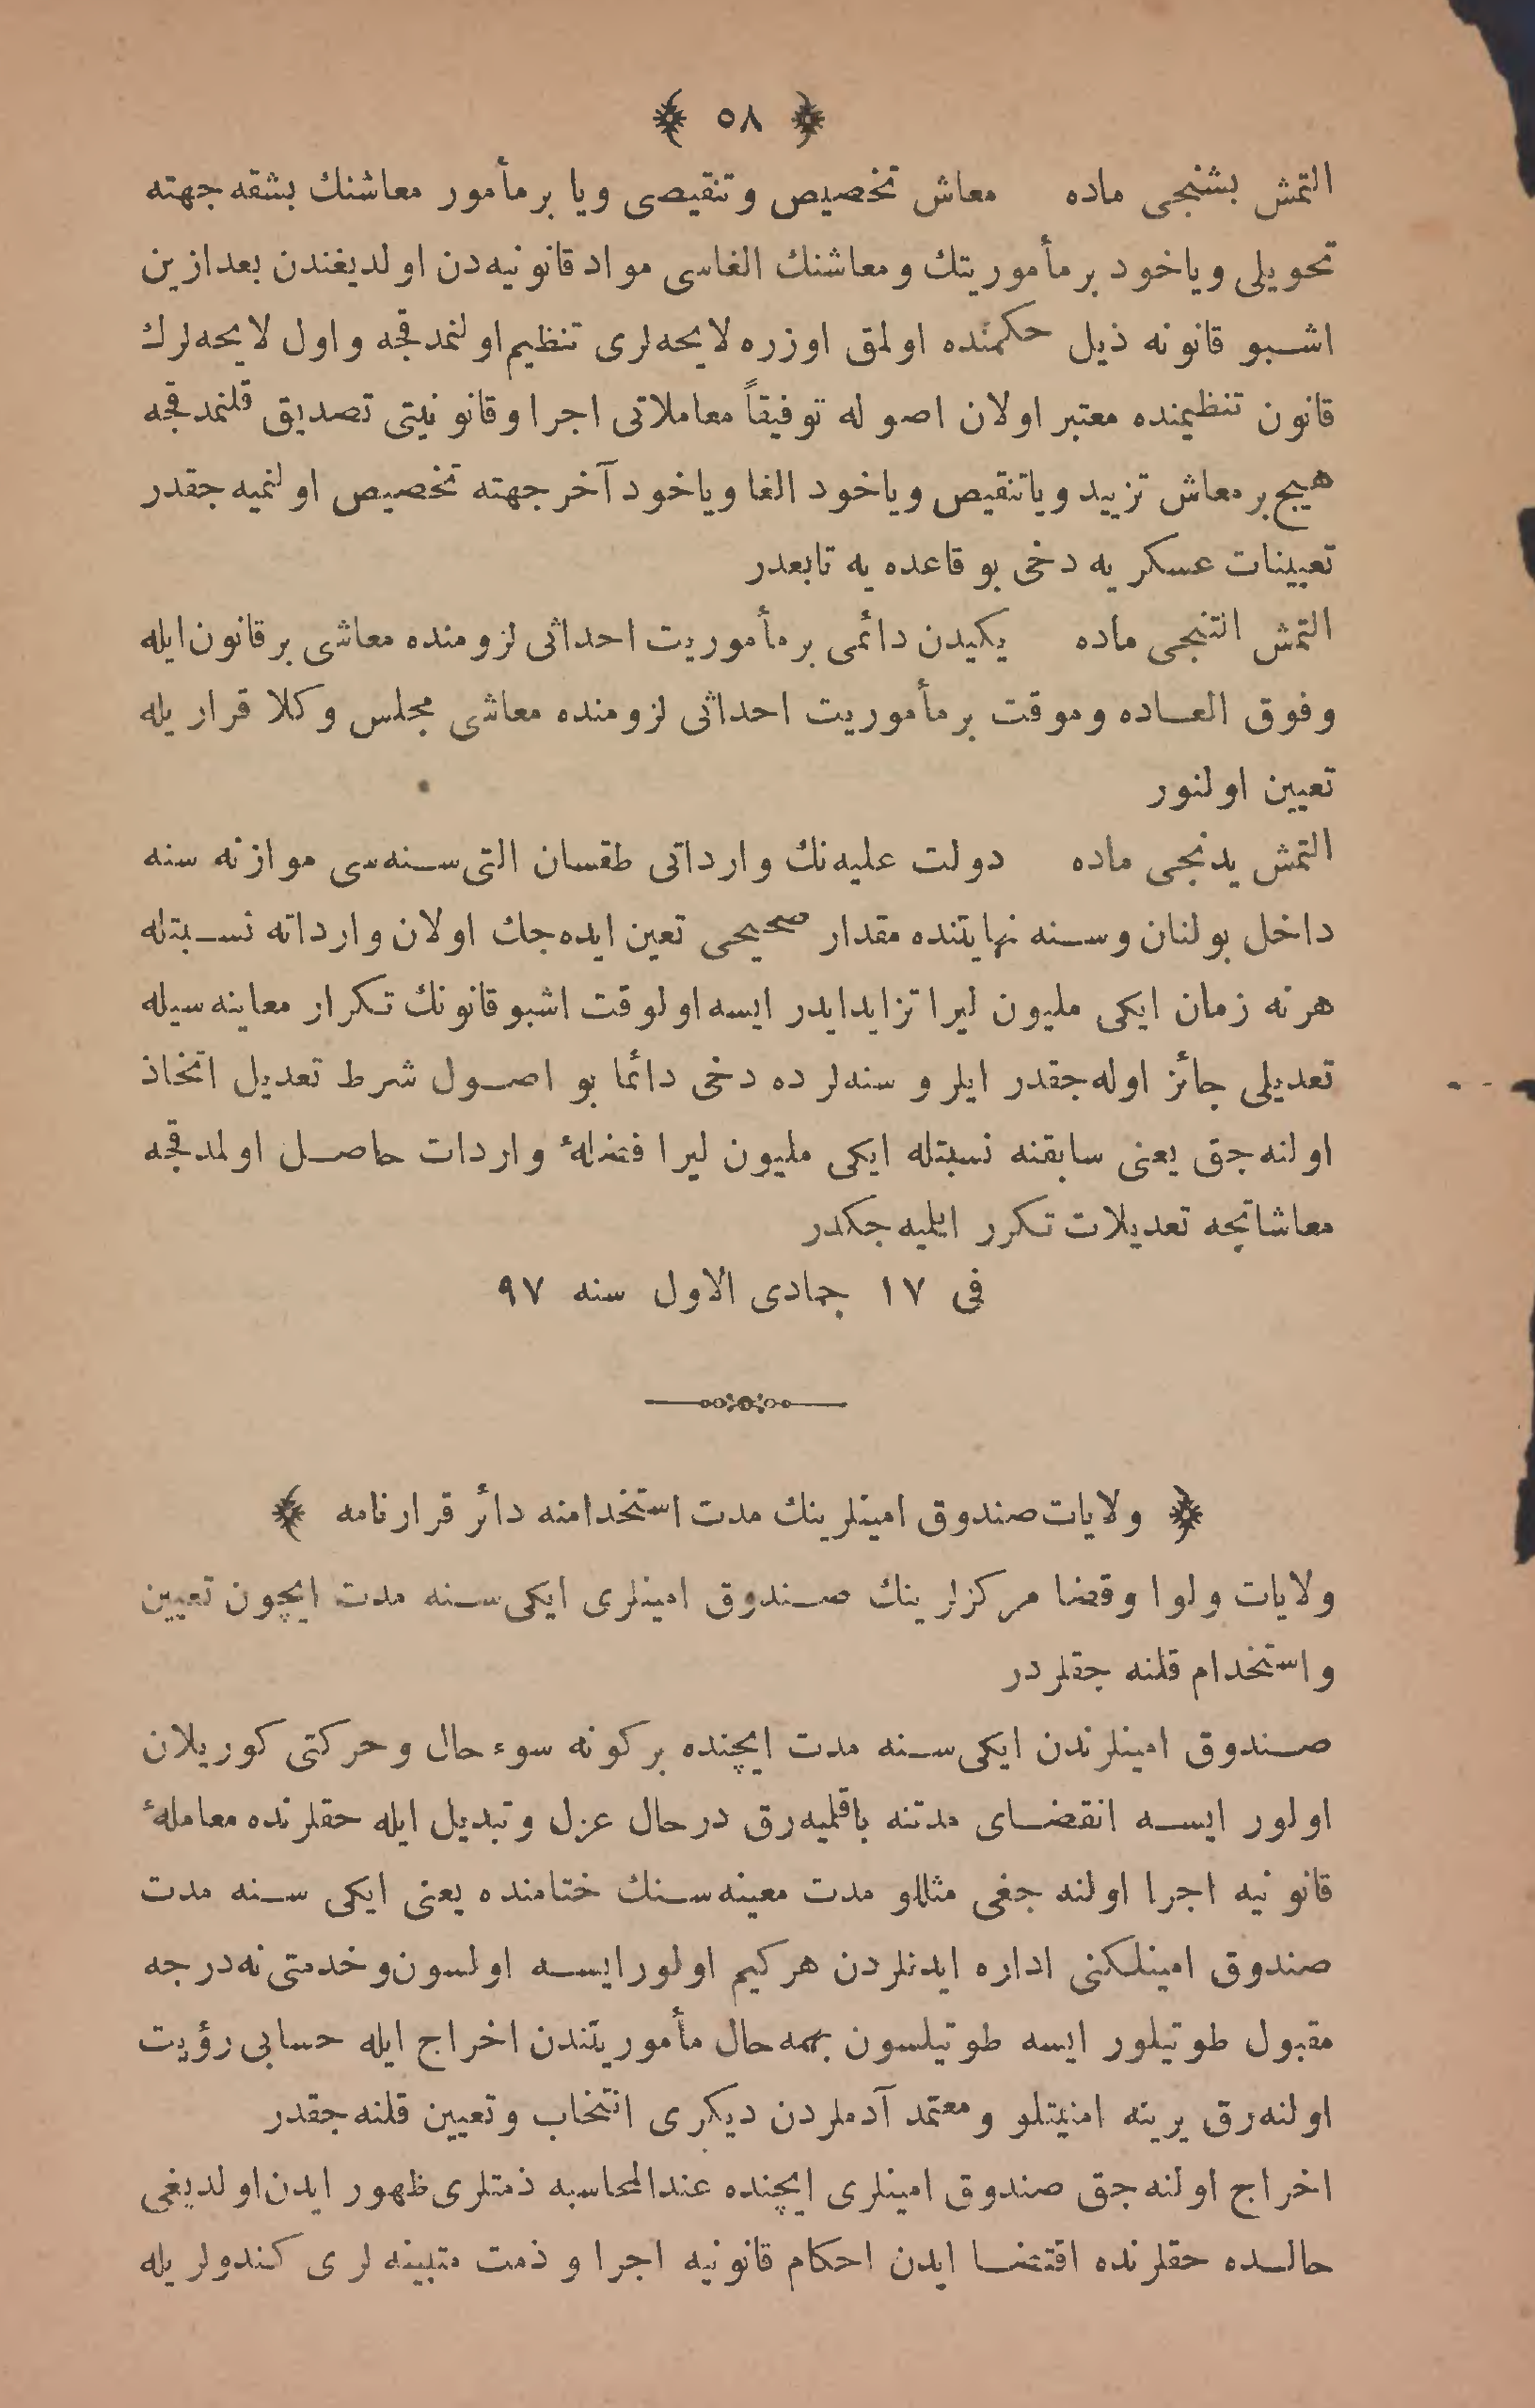 ﴿ ٥٨ ﴾
التمش بشنجی ماده معاش تخصیص و تنقیصی ویا بر مأمور معاشنك بشقه جهته
تحویلی ویاخود بر مأموریتك و معاشنك الغاسی مواد قانونیه‌دن اولدیغندن بعدازین
اشبو قانونه ذیل حکمنده اولمق اوزره لایحه‌لری تنظیم اولنمدقجه و اول لایحه‌لرك
قانون تنظیمنده معتبر اولان اصوله توفیقاً معاملاتی اجرا و قانونیتی تصدیق قلنمدقجه
هیچ بر معاش تزیید ویاتنقیص ویاخود الغا ویاخود آخر جهته تخصیص اولنمیه جقدر
تعیینات عسکریه دخی بو قاعده یه تابعدر
التمش التنجی ماده یکیدن دائمی بر مأموریت احداثی لزومنده معاشی بر قانون ایله
وفوق العاده وموقت بر مأموریت احداثی لزومنده معاشی مجلس وکلا قراریله
تعیین اولنور
التمش یدنجی ماده دولت علیه‌نك وارداتی طقسان التی سنه‌سی موازنه سنه
داخل بولنان وسنه نهایتنده مقدار صحیحی تعین ایده‌جك اولان وارداته نسبتله
هر نه زمان ایکی ملیون لیرا تزاید ایدر ایسه اولوقت اشبو قانونك تکرار معاینه سیله
تعدیلی جائز اوله‌جقدر ایلر و سنه‌لر ده دخی دائما بو اصول شرط تعدیل اتخاذ
اولنه‌جق یعنی سابقنه نسبتله ایکی ملیون لیرا فضلهٔ واردات حاصل اولمدقجه
معاشاتجه تعدیلات تکرر ایلمیه جکدر
فی ١٧ جمادی الاول سنه ٩٧
﴿ ولایات صندوق امینلرینك مدت استخدامنه دائر قرارنامه ﴾
ولایات ولوا وقضا مرکزلرینك صندوق امینلری ایکی سنه مدت ایچون تعیین
واستخدام قلنه جقلردر
صندوق امینلرندن ایکی سنه مدت ایچنده بر کونه سوء حال و حرکتی کوریلان
اولور ایسه انقضای مدتنه باقلمیه‌رق درحال عزل و تبدیل ایله حقلرنده معاملهٔ
قانونیه اجرا اولنه جغی مثللو مدت معینه‌سنك ختامنده یعنی ایکی سنه مدت
صندوق امینلکنی اداره ایدنلردن هر کیم اولور ایسه اولسون و خدمتی نه‌درجه
مقبول طوتیلور ایسه طوتیلسون بهمه‌حال مأموریتندن اخراج ایله حسابی رؤیت
اولنه‌رق یرینه امنیتلو و معتمد آدملردن دیکری انتخاب و تعیین قلنه‌جقدر
اخراج اولنه‌جق صندوق امینلری ایچنده عندالمحاسبه ذمتلری ظهور ایدن اولدیغی
حالده حقلرنده اقتضا ایدن احکام قانونیه اجرا و ذمت متبینه لری کندولریله